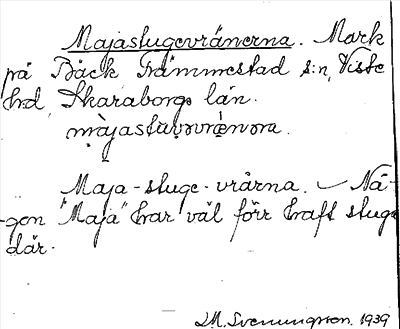 Majastugevränerna. Mark
på Bäck Främmestad s:n, Viste
hd, Skaraborgs län.
Maja-stuge-vrårna. Nå-
gon "Maja" har väl förr haft stuga
där.
S. M. Svenungson. 1939